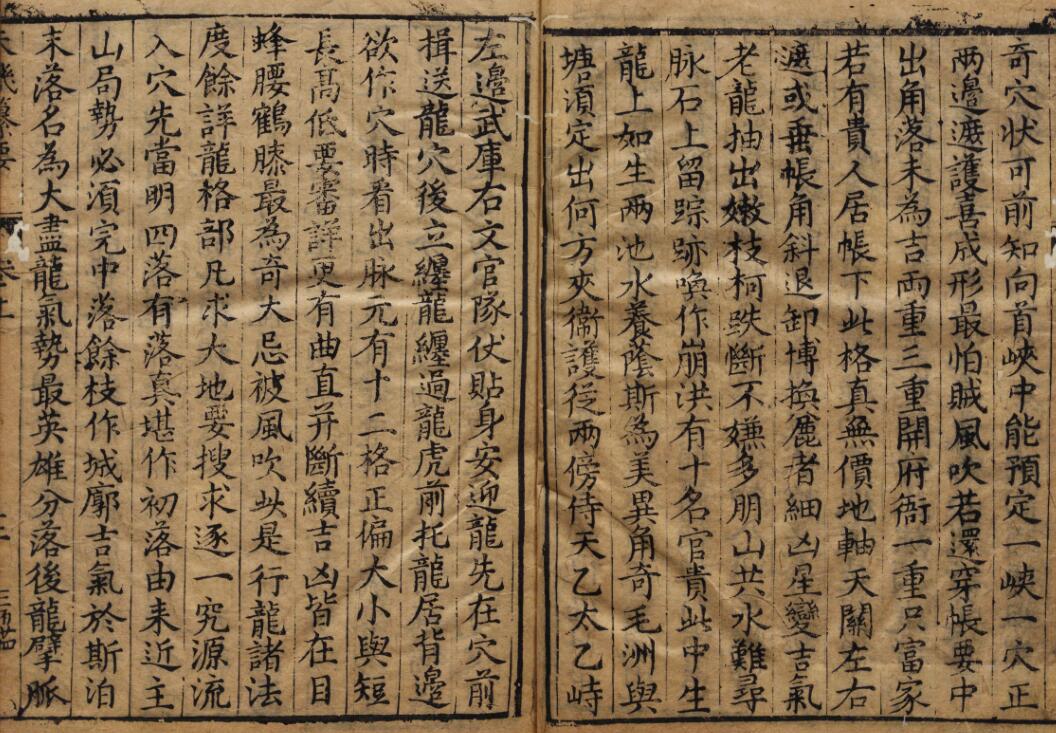 奇穴状可前知向首峽中能預定一峽一穴正
两邊遮護喜成形最怕賊風吹若還穿帳要中
出角落未為吉両重三重開府衙一重只富家
若有貴人居帳下此格真無價地軸天關左右
遮或垂帳角斜退卸博換麄者細凶星變吉氣
老龍抽出嫩枝柯跌斷不嫌多朋山共水難尋
脉石上留踪跡喚作崩洪有十名官貴此中生
龍上如生两池水養蔭斯為美異角奇毛洲與
塘須定出何方夾衛護従两傍侍天乙太乙峙
左邊武庫右文官隊伏貼身安迎龍先在穴前
揖送龍穴後立纏龍纏過龍虎前托龍居背邊
欲作穴時看出脉元有十二格正偏大小與短
長髙低要審詳更有曲直并斷續吉凶皆在目
蜂腰鶴膝最為奇大忌被風吹此是行龍諸法
度餘詳龍格部凡求大地要搜求逐一究源流
入穴先當明四落有落真堪作初落由来近主
山局勢必湏完中落餘枝作城廓吉氣於斯泊
末落名為大盡龍氣勢最英雄分落後龍擘脈